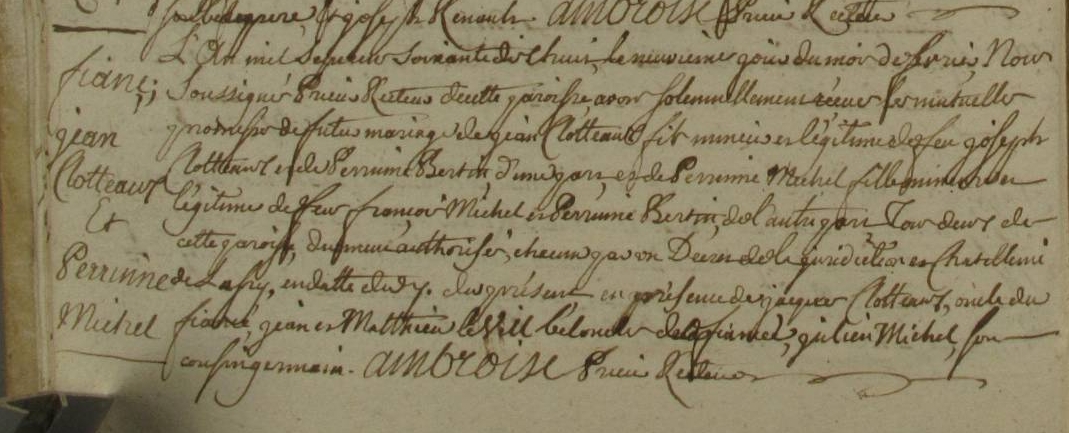 joseph Renault ambroise Prieur Recteur
fianç;
jean
Clotteaux
Et
Perrinne
Michel
L'An mil sept cens soixante dix huit, le neuvieme jour du mois de fevrier, Nous
Soussigné Prieur Recteur de cette paroisse avons solemnellement receu les mutuelles
promesses de futur mariage de jean Clotteaux fils mineur et légitime de feu joseph
Clotteaux et de Perrinne Bertin d'une part, et de Perrinne Michel fille mineure et
légitime de feu françois Michel et Perrinne Bertin, de l'autre part Tous deux de
cette paroisse, duement authorisés, chacun par un Décret de la juridiction et Chatellenie
de en datte du 7. du présent en présence de jacques Clotteaux, oncle du
fiancé, jean et Matthieu oncles de la fiancée, julien Michel, son
cousin germain. ambroise Prieur Recteur